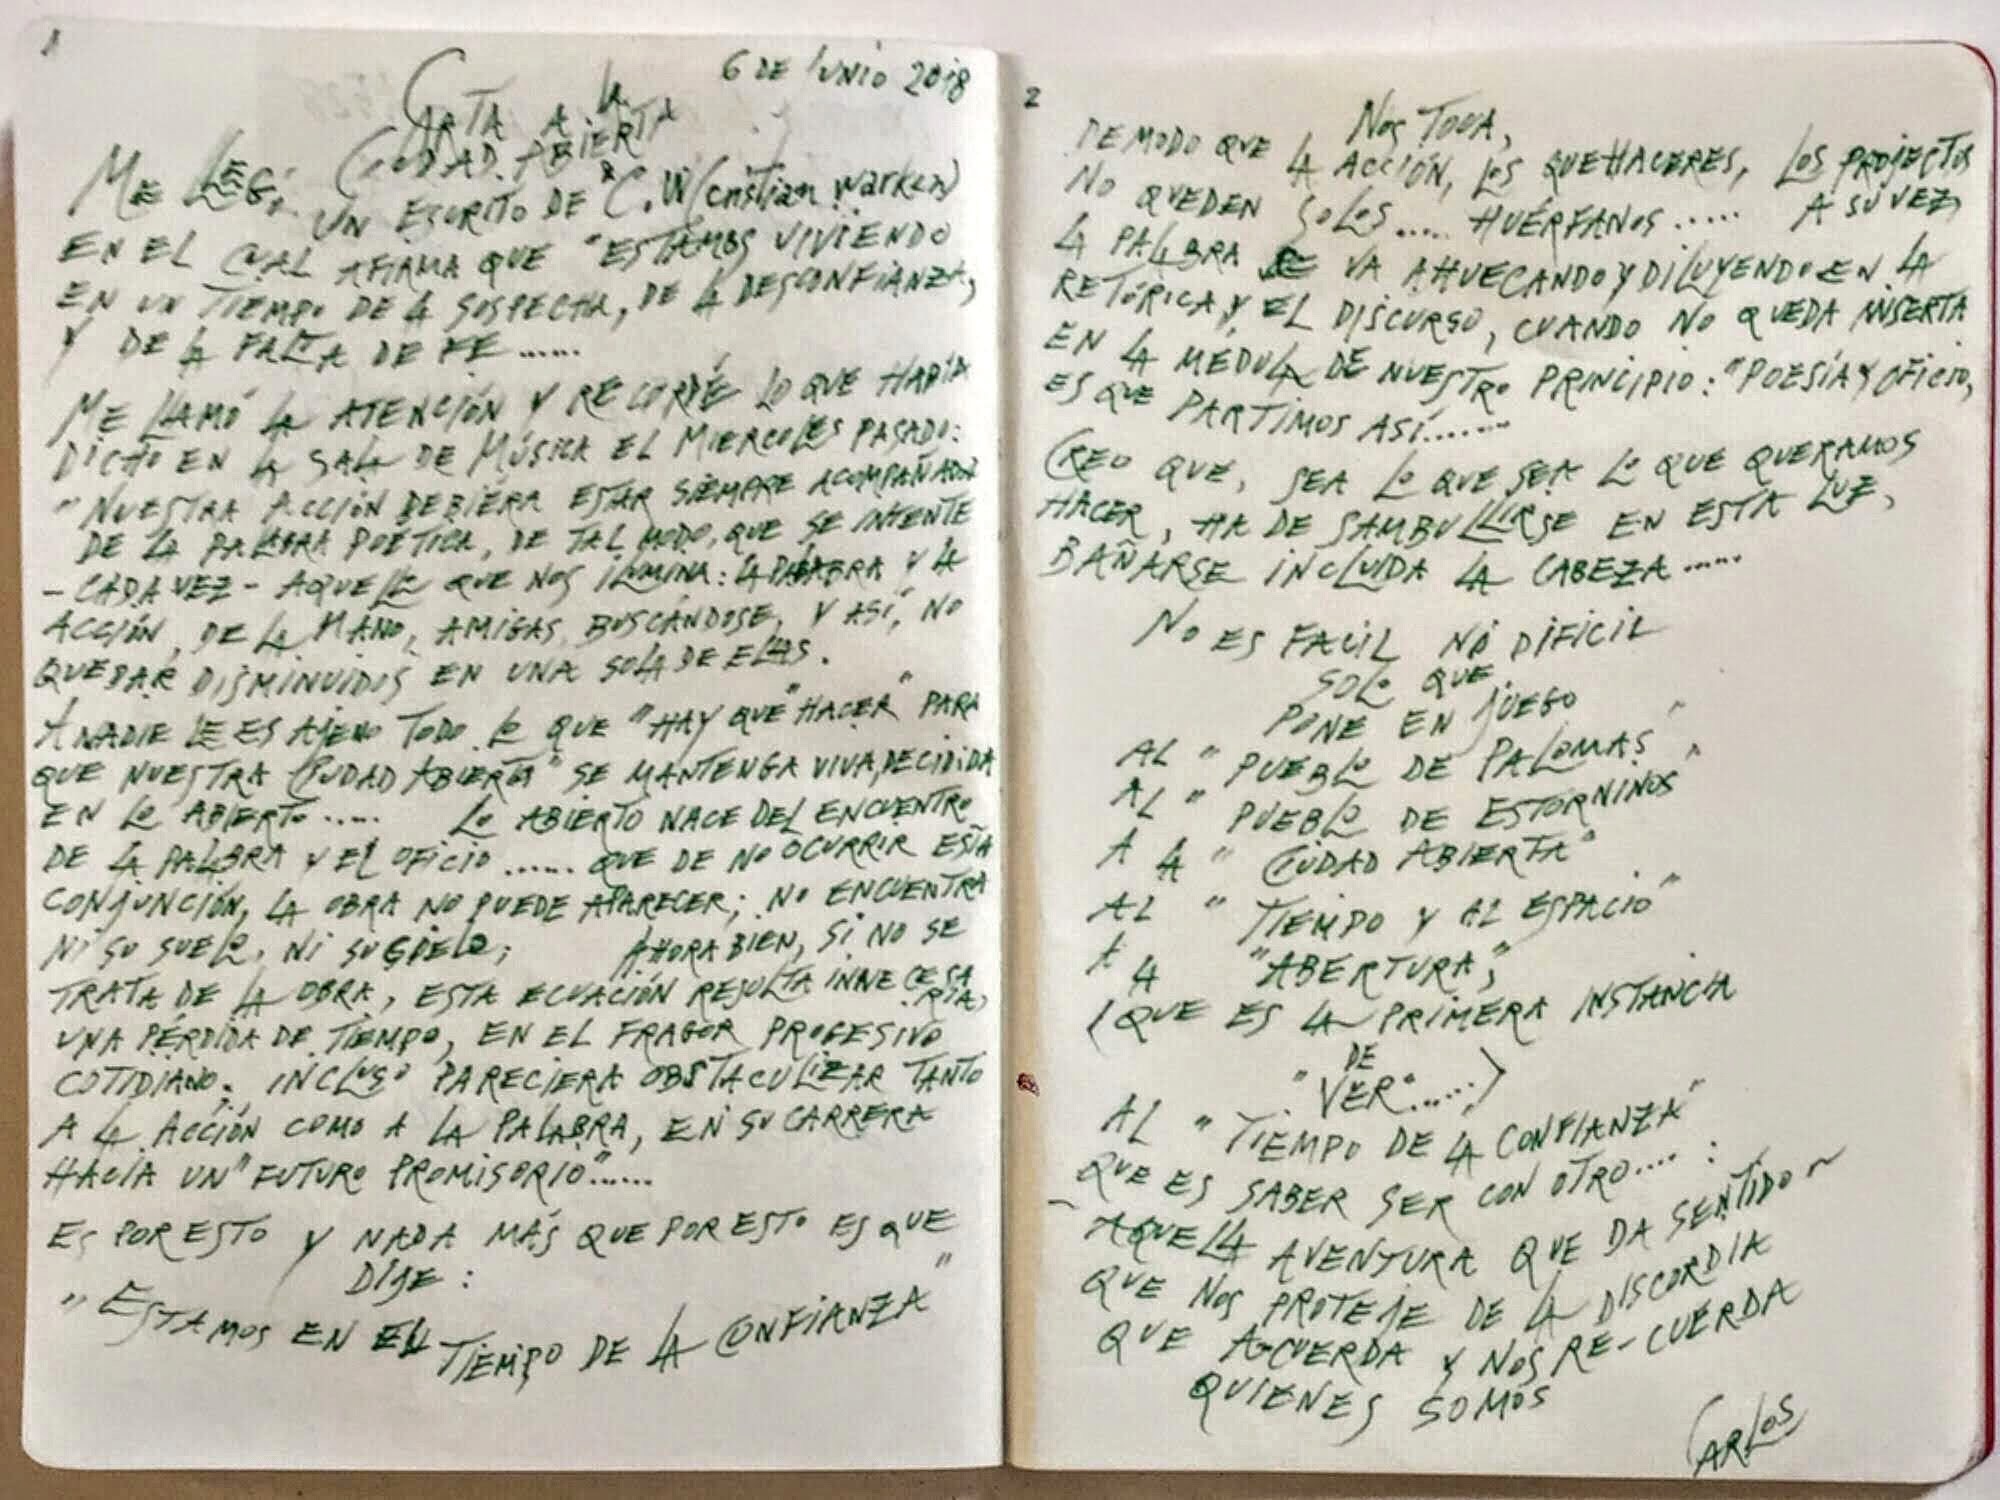 1
6 DE JUNIO 2018
CARTA A LA
CIUDAD ABIERTA
ME LEGÍ
UN ESCRITO DE "C.W (cristian warken)
EN EL CUAL AFIRMA QUE "ESTAMOS VIVIENDO
EN UN TIEMPO DE LA SOSPECHA, DE LA DESCONFIANZA,
Y DE LA FALTA DE FE ......
ME LLAMÓ LA ATENCIÓN Y RECORDÉ LO QUE HABÍA
DICHO EN LA SALA DE MÚSICA EL MIERCOLES PASADO:
"NUESTRA ACCIÓN DEBIERA ESTAR SIEMPRE ACOMPAÑADA
DE LA PALABRA POÉTICA, DE TAL MODO, QUE SE INTENTE
- CADA VEZ - AQUELLO QUE NOS ILUMINA: LA PALABRA Y LA
ACCIÓN, DE LA MANO, AMIGAS, BUSCÁNDOSE, Y ASÍ, NO
QUEDAR DISMINUIDOS EN UNA SOLA DE ELLAS.
A NADIE LE ES AJENO TODO LO QUE "HAY QUE HACER" PARA
QUE NUESTRA CIUDAD ABIERTA" SE MANTENGA VIVA, DECIDIDA
EN LO ABIERTO ..... LO ABIERTO NACE DEL ENCUENTRO
DE LA PALABRA Y EL OFICIO ...... QUE DE NO OCURRIR ESTA
CONJUNCIÓN, LA OBRA NO PUEDE APARECER; NO ENCUENTRA
NI SU SUELO, NI SU CIELO; AHORA BIEN, SI NO SE
TRATA DE LA OBRA, ESTA ECUACIÓN RESULTA INNECESARIA,
UNA PÉRDIDA DE TIEMPO, EN EL FRAGOR PROGESIVO
COTIDIANO; INCLUSO PARECIERA OBSTACULIZAR TANTO
A LA ACCIÓN COMO A LA PALABRA, EN SU CARRERA
HACIA UN "FUTURO PROMISORIO"......
ES POR ESTO Y NADA MÁS QUE POR ESTO ES QUE
DIJE:
"ESTAMOS EN EL TIEMPO DE LA CONFIANZA"
2
NOS TOCA,
DE MODO QUE LA ACCIÓN, LOS QUEHACERES, LOS PROYECTOS
NO QUEDEN SOLOS ..... HUÉRFANOS ..... A SU VEZ,
LA PALABRA SE VA AHUECANDO Y DILUYENDO EN LA
RETÓRICA Y EL DISCURSO, CUANDO NO QUEDA INSERTA
EN LA MÉDULA DE NUESTRO PRINCIPIO: "POESÍA Y OFICIO,
ES QUE PARTIMOS ASÍ.......
CREO QUE, SEA LO QUE SEA LO QUE QUERAMOS
HACER, HA DE SAMBULLIRSE EN ESTA LUZ,
BAÑARSE INCLUIDA LA CABEZA .....
NO ES FACIL NI DIFICIL
SOLO QUE
PONE EN JUEGO
AL "PUEBLO DE PALOMAS"
AL "PUEBLO DE ESTORNINOS"
A LA "CIUDAD ABIERTA"
AL "TIEMPO Y AL ESPACIO"
A LA "ABERTURA",
(QUE ES LA PRIMERA INSTANCIA
DE
"VER".....)
AL "TIEMPO DE LA CONFIANZA"
QUE ES SABER SER CON OTRO .... :
- AQUELLA AVENTURA QUE DA SENTIDO -
QUE NOS PROTEJE DE LA DISCORDIA
QUE A-CUERDA Y NOS RE-CUERDA
QUIENES SOMOS
CARLOS